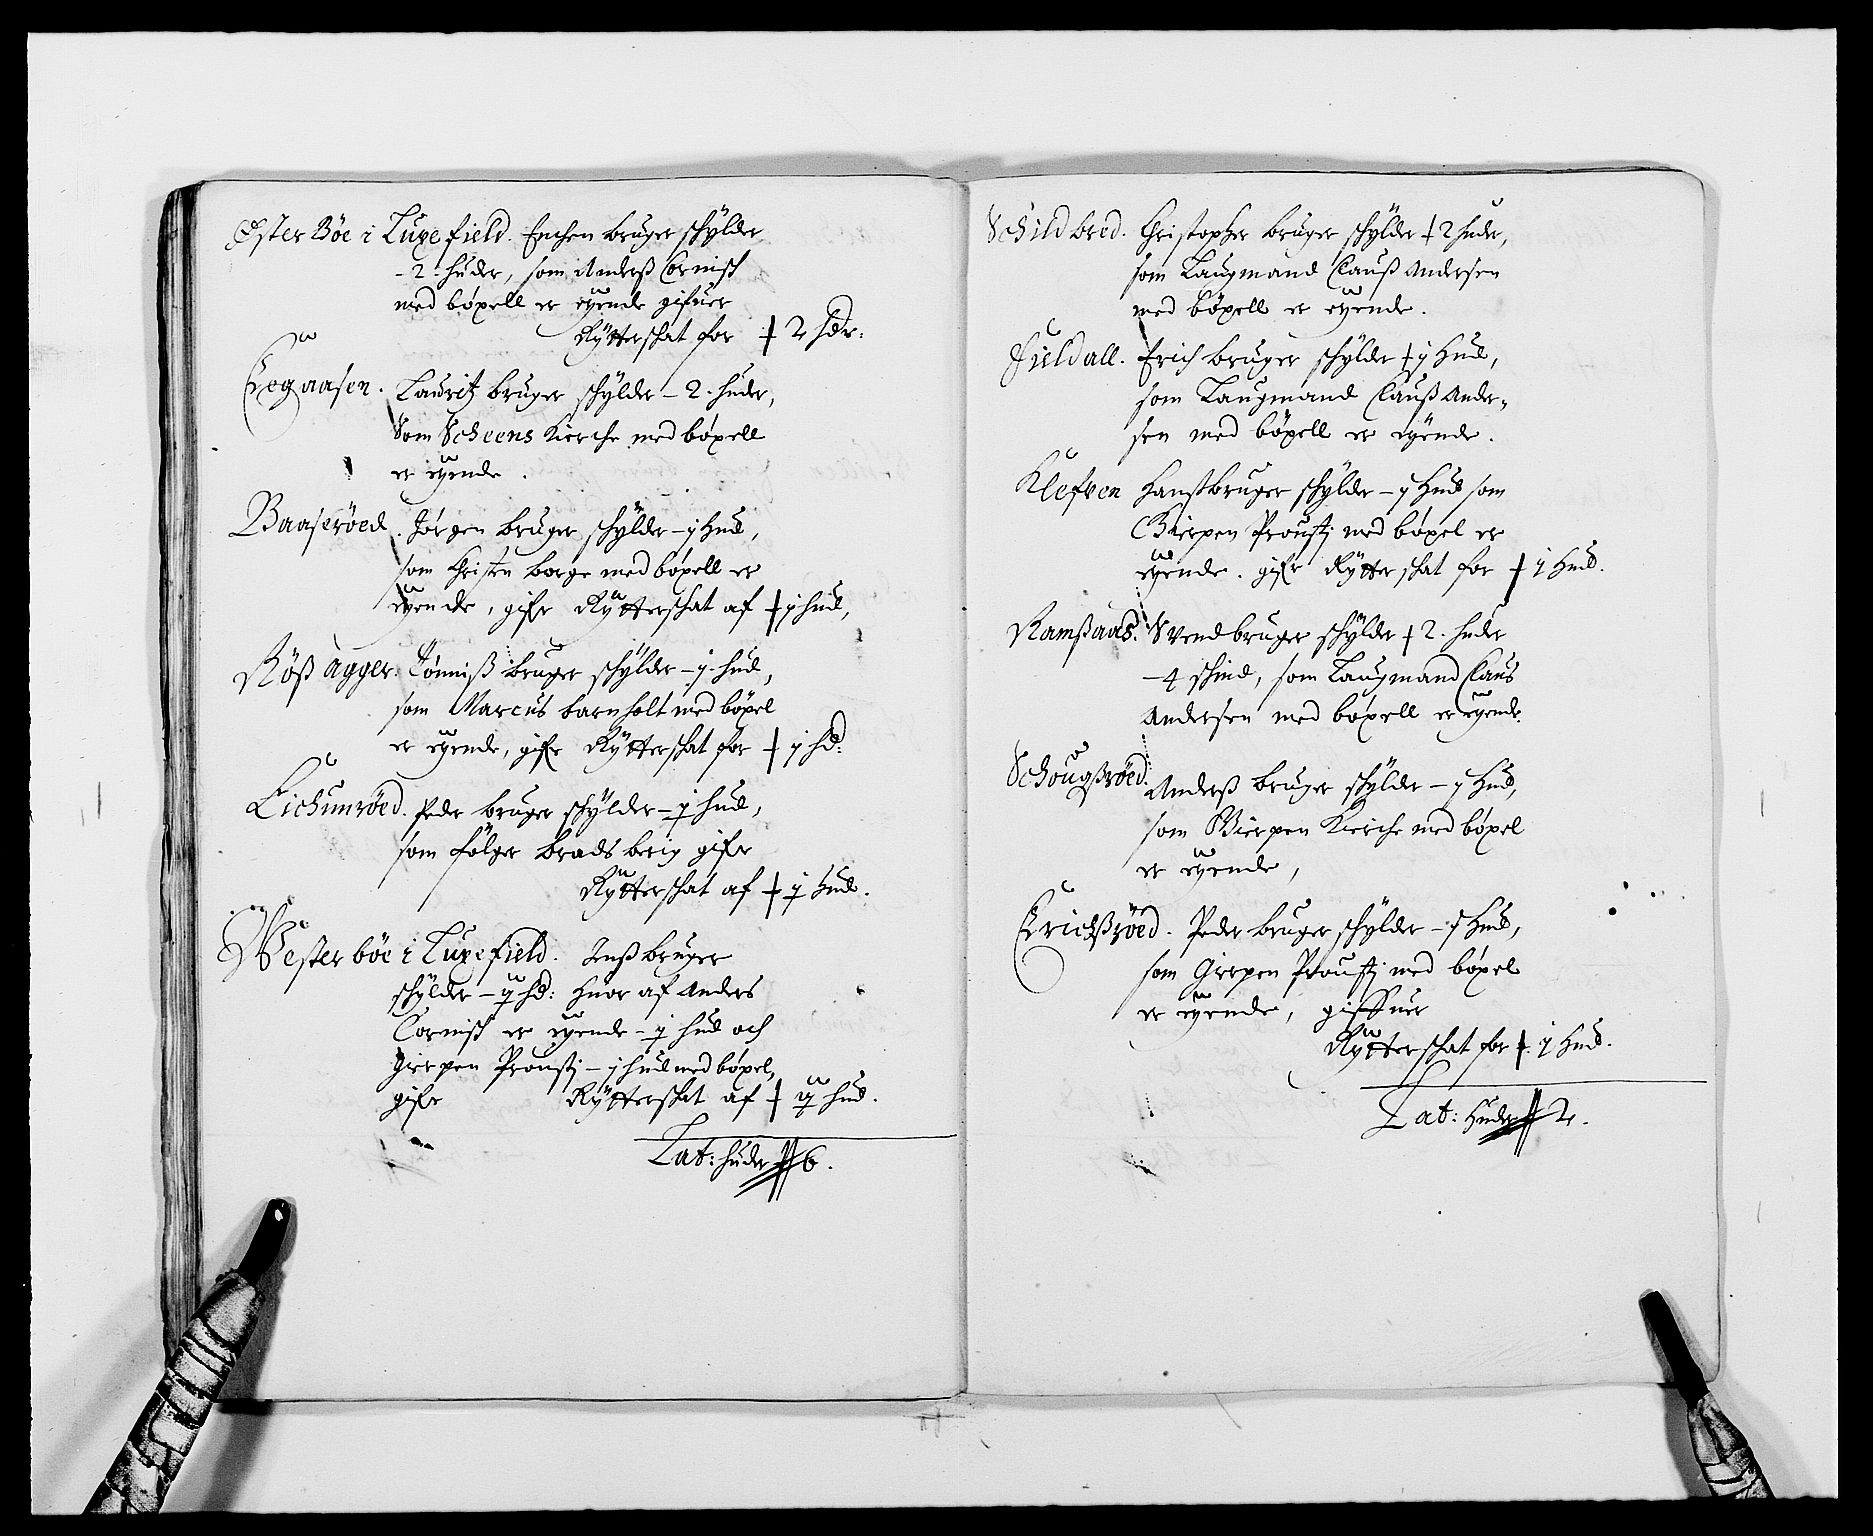 Øster Böe i Luxefield. Enchen bruger schylder
- 2. huder, som Anderß Cornisch
med böxell er eyende gifuer
Rytterschat for ⨍ 2 hdr:
Eegaasen. Lauritz bruger schylder - 2. huder,
Som Scheens Kierche med böxell
er eyende.
Baaseröed. Jörgen bruger schylder - j Hud,
som Christen borge med böxell er
eyende, gifr Rytterschat af ⨍ j hud,
Röß Agger. Tönniß bruger schylder - j. hud,
som Marcus barnholt med böxel
er eyende, gifr Rytterschat for ⨍ j hd:
Eichunröed. Peder bruger schylder - j hud,
som fölger bradsberig gifr
Rytterschat af ⨍ j hud.
Wester böe i Luxefield. Jenß bruger
schylder - ij hd: huor af Anders
Cornisch er eyende - j hud och
Gierpen Prousti - j hud med böxel,
gifr Rytterschat af ⨍ ij hud.
Lat: huder ⨎ 6.
Schildbred. Christopher bruger schylder ⨍ 2 huder,
som Laugmand Clauß Andersen
med böxell er eyende.
Fieldall. Erich bruger schylder ⨍ j Hud,
som Laugmand Clauß Ander-
sen med böxell er eyende.
Klefven Hanß bruger schylder - j Hud som
Gierpen Prousti med böxel er
eyende. gifr Rytterschat for ⨍ j Hud.
Ramßaas. Svend bruger schylder ⨍ 2. huder
- 4 schind, som Laugmand Claus
Andersen med böxell er eyende.
Schougßröed. Anderß bruger schylder - j Hud,
som Gierpen Kierche med böxel
er eyende,
Erichßröed. Peder bruger schylder - j Hud,
som Gierpen Prousti med böxel
er eyende, giffuer
Rytterschat for ⨍ j Hud.
Lat: Huder ⨎ 2.